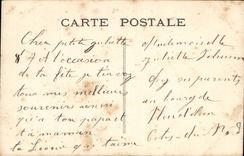 CARTE POSTALE
Cher petite Juliette
A l'occasion
de la fête je t'envoy
tous mes meilleurs
souvenirs ainsi
qu'a ton papa et
ta maman
ta Léonie qui t'aime
Mademoiselle
Juliette
chez ses parents
au bourg de
Côtes-du-Nord